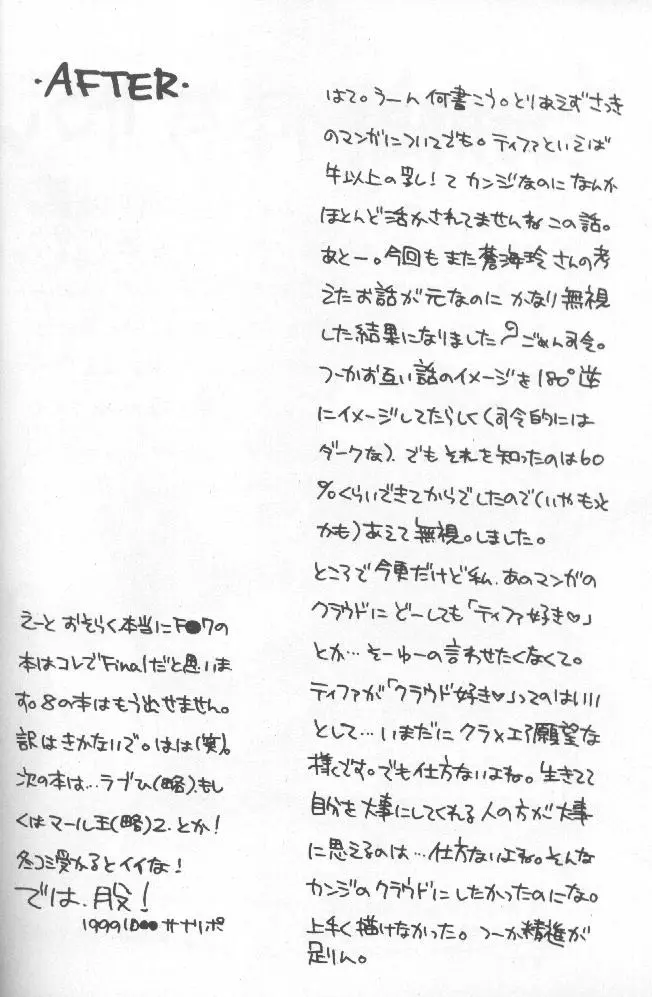 ・AFTER・
はて。うーん何書こう。とりあえずさっき
のマンガについてでも。ティファといえば
牛以上の乳！てカンジなのになんか
ほとんど活かされてませんねこの話。
あとー。今回もまた蒼海玲さんの考
えたお話が元なのにかなり無視
した結果になりました ごめん司令。
つーかお互い話のイメージを180°逆
にイメージしてたらしく(司令的には
ダークな)。でもそれを知ったのは60
%くらいできてからでしたので(いやもっと
かも)あえて無視。しました。
ところで今更だけど私、あのマンガの
クラウドにどーしても「ティファ好き♡」
とか…そーゆーの言わせたくなくて。
ティファが「クラウド好き♡」ってのはいい
として…いまだにクラ×エア願望な
様です。でも仕方ないよね。生きてて
自分を大事にしてくれる人の方が大事
に思えるのは…仕方ないよね。そんな
カンジのクラウドにしたかったのにな。
上手く描けなかった。つーか精進が
足りん。
えーとおそらく本当にF●7の
本はコレでFinalだと思いま
す。8の本はもう出せません。
訳はきかないで。はは(笑)。
次の本は…ラブひ(略)もし
くはマール王(略)2.とか！
冬コミ受かるとイイな！
では、股！
1999.10●● サナリポ